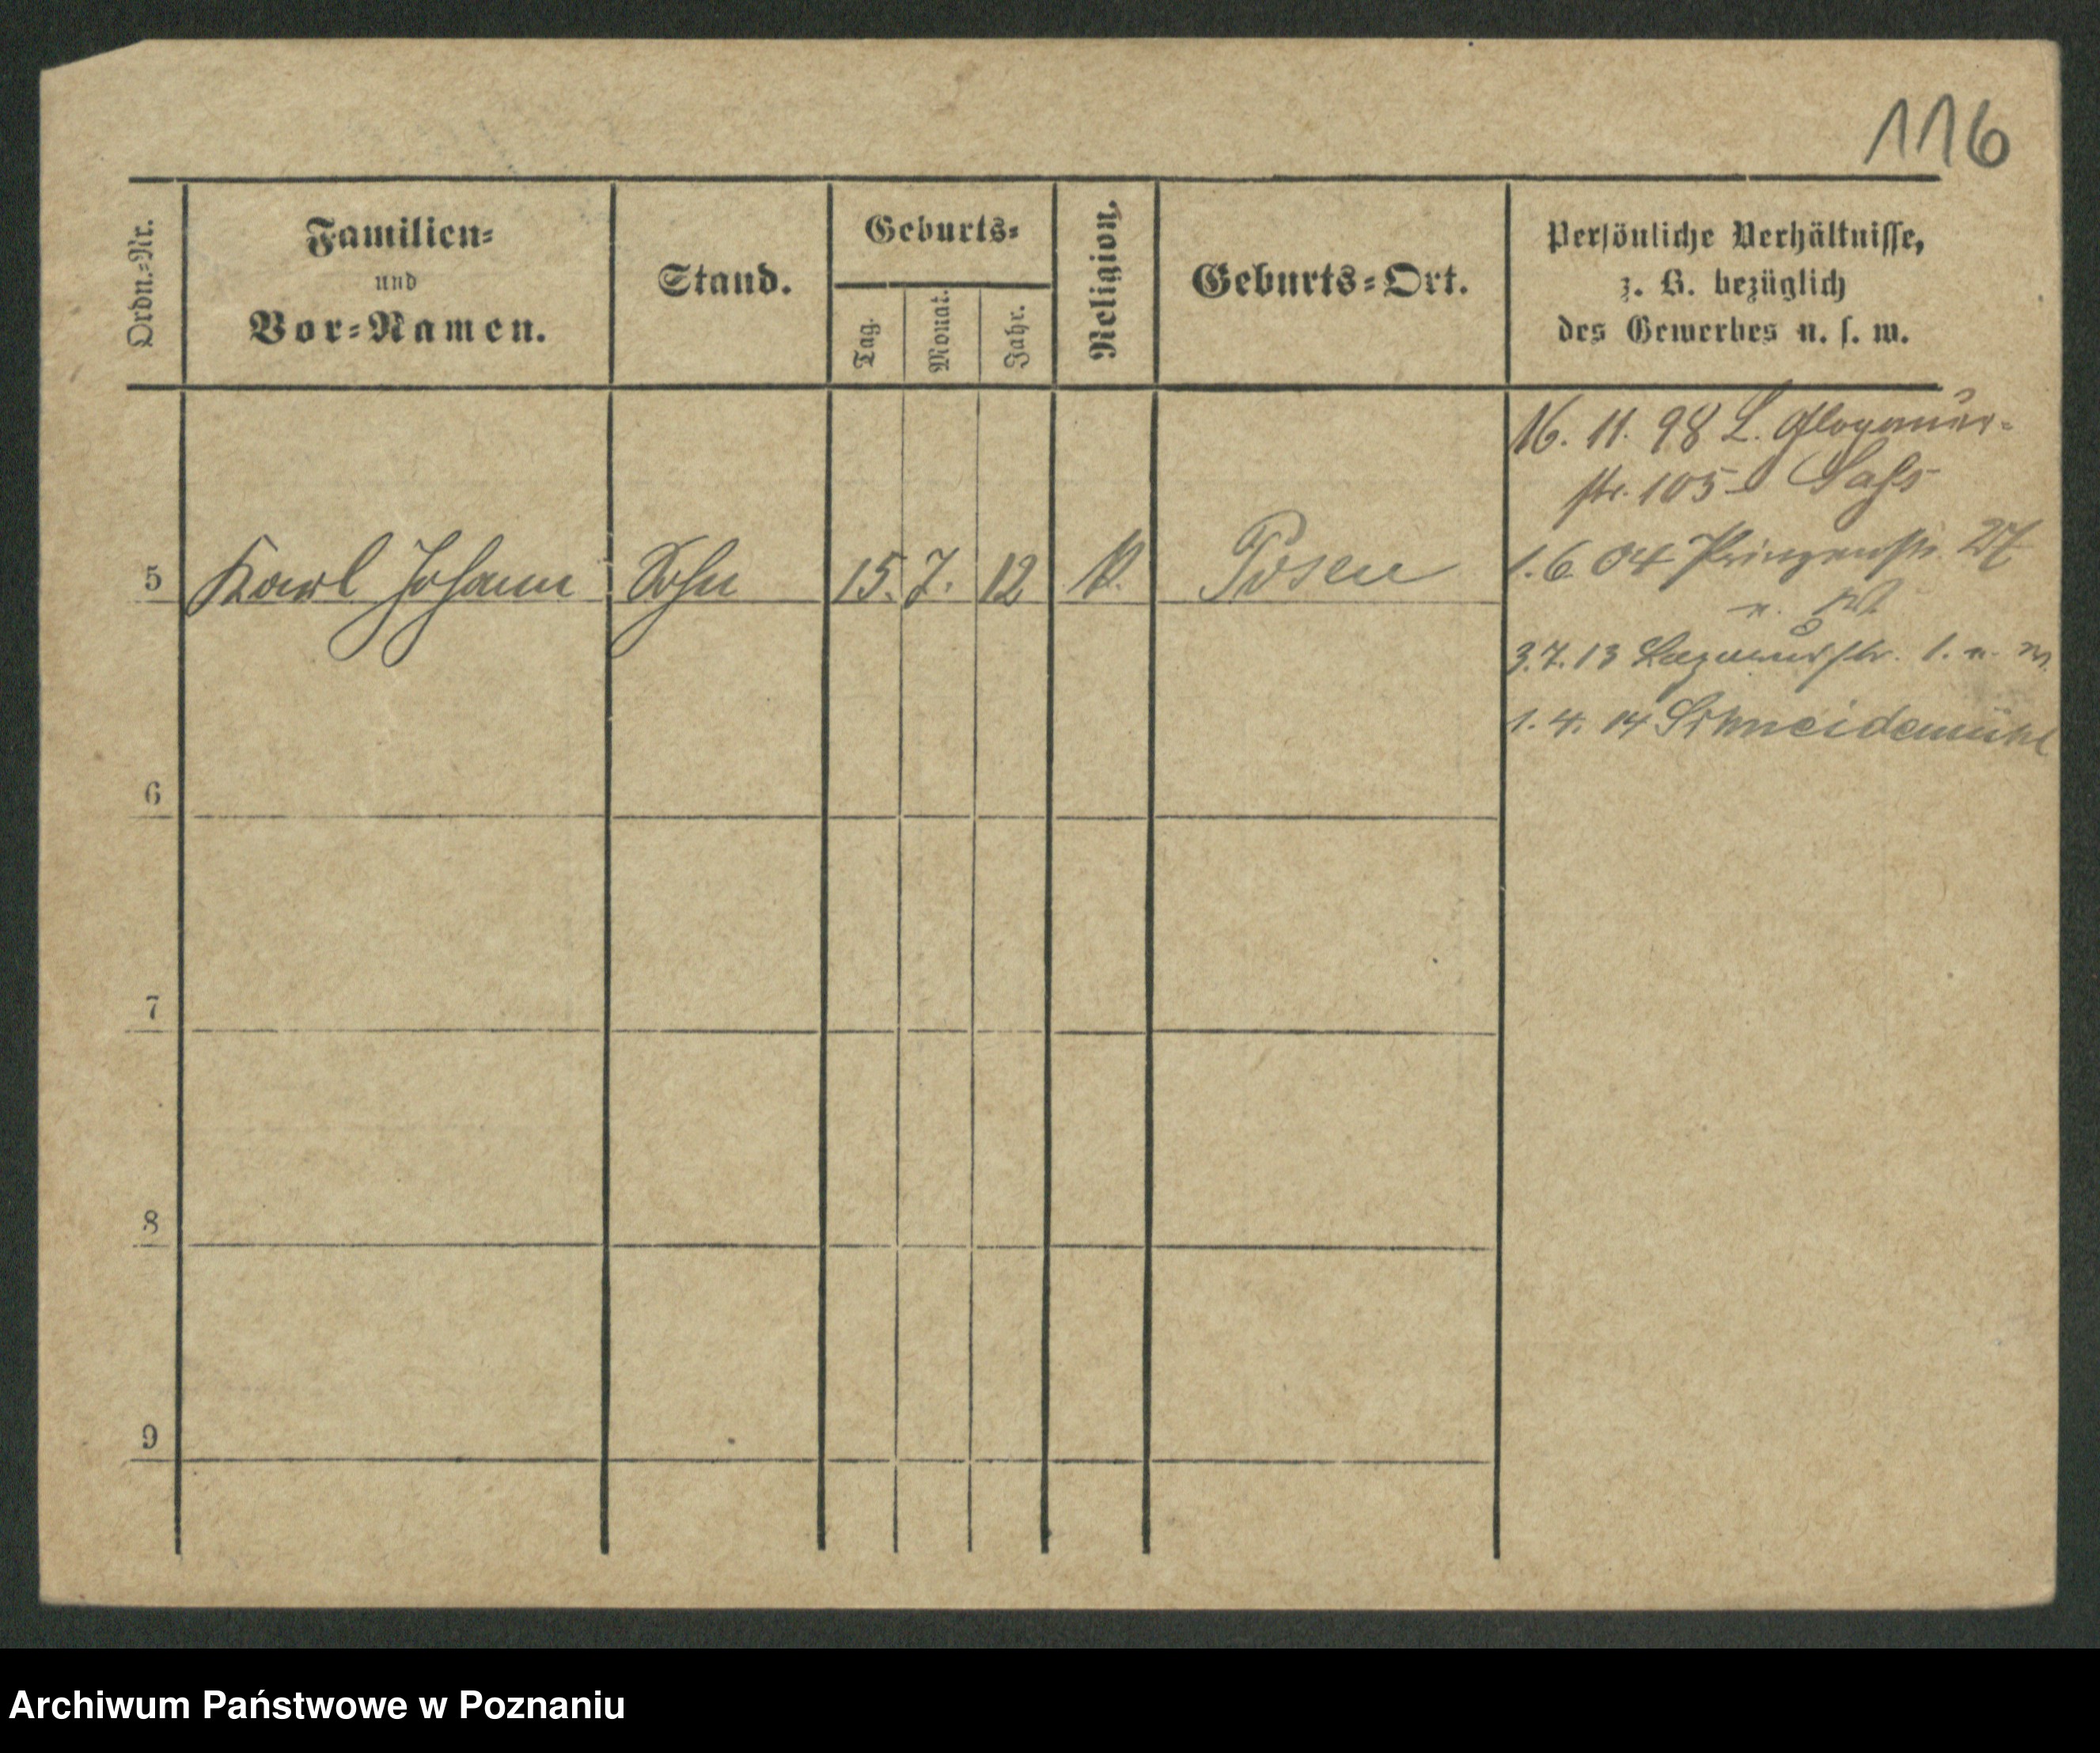 116
Ordn.=Nr.
Familien=
und
Vor=Namen.
Stand.
Geburts=
Tag.
Monat.
Jahr.
Religion.
Geburts=Ort.
Persönliche Verhältnisse,
z. B. bezüglich
des Gewerbes u. s. w.
16. 11. 98 L. Glogauer-
str. 105
5 Karl Johann Sohn 15. 7. 12 Posen
1. 6. 04 Prinzenstr.
3. 7. 13 Lazarusstr. 1.
1. 4. 14 Schneidemühl
6
7
8
9
Archiwum Państwowe w Poznaniu